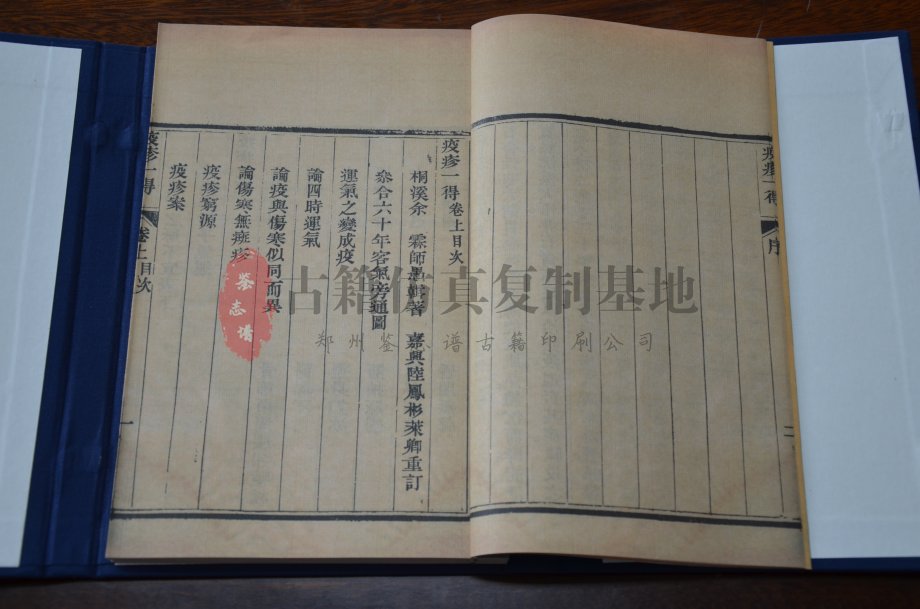 疫疹一得
序
二
疫疹一得卷上目次
桐溪余 霖師愚甫著 嘉興陸鳳彬萊卿重訂
叅合六十年客氣旁通圖
運氣之變成疫
論四時運氣
論疫與傷寒似同而異
論傷寒無斑疹
疫疹窮源
疫疹案
疫疹一得
卷上目次
一
古籍仿真复制基地
郑州鉴志谱古籍印刷公司
鉴志谱